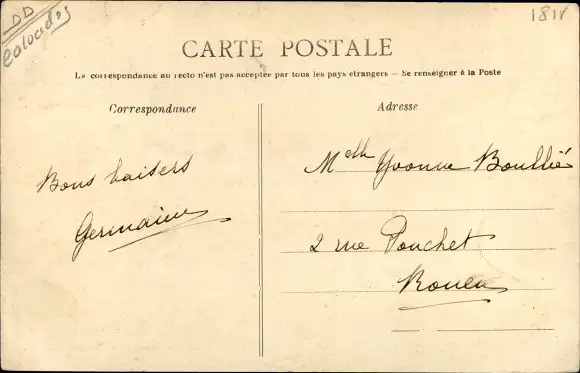 DD
Calvados
1818
CARTE POSTALE
La correspondance au recto n'est pas acceptée par tous les pays étrangers — Se renseigner à la Poste
Correspondance
Adresse
Bons baisers
Germaine
Melle Yvonne Boullié
2 rue Pouchet
Rouen